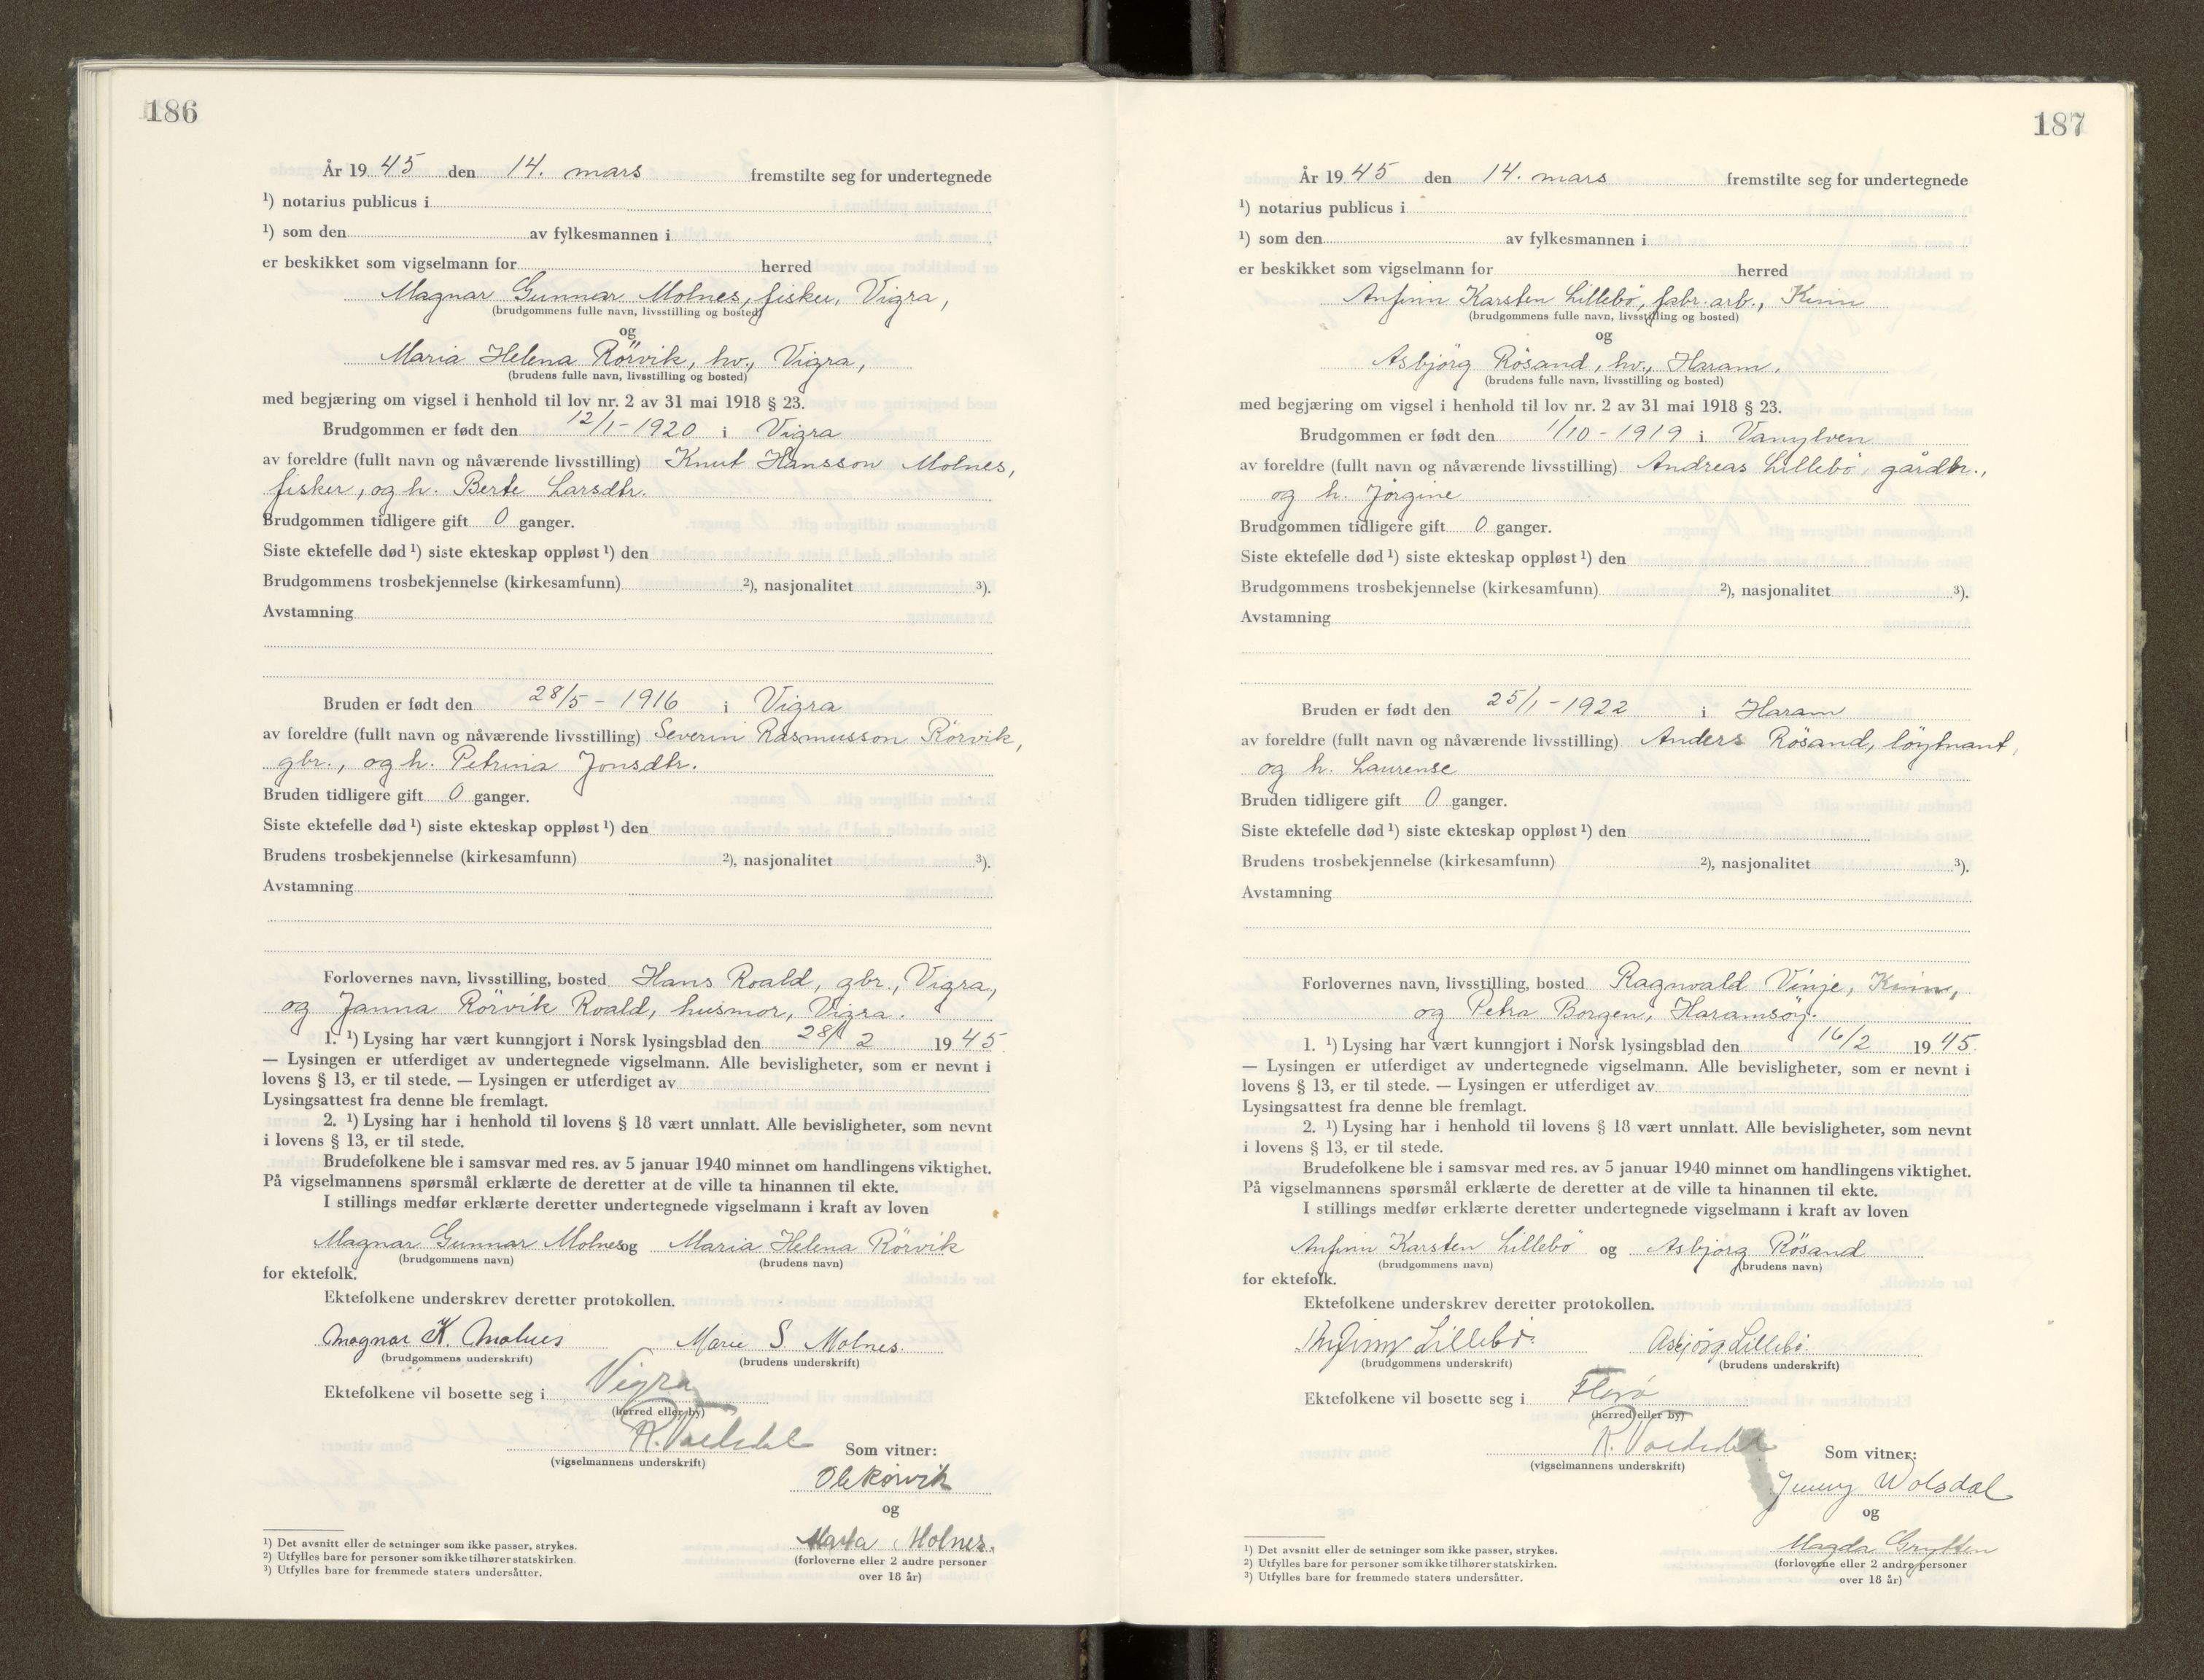 186
År 1945 den 14. mars fremstilte seg for undertegnede
¹) notarius publicus i
¹) som den av fylkesmannen i
er beskikket som vigselmann for herred
Magnar Gunnar Molnes, fisker, Vigra,
(brudgommens fulle navn, livsstilling og bosted)
og
Maria Helena Rörvik, hv., Vigra,
(brudens fulle navn, livsstilling og bosted)
med begjæring om vigsel i henhold til lov nr. 2 av 31 mai 1918 § 23.
Brudgommen er født den 12/1-1920 i Vigra
av foreldre (fullt navn og nåværende livsstilling) Knut Hansson Molnes,
fisker, og h. Berte Larsdtr.
Brudgommen tidligere gift 0 ganger.
Siste ektefelle død ¹) siste ekteskap oppløst ¹) den
Brudgommens trosbekjennelse (kirkesamfunn) ²), nasjonalitet ³).
Avstamning
Bruden er født den 28/5 - 1916 i Vigra
av foreldre (fullt navn og nåværende livsstilling) Severin Rasmusson Rörvik,
gbr., og h. Petrina Jonsdtr.
Bruden tidligere gift 0 ganger.
Siste ektefelle død ¹) siste ekteskap oppløst ¹) den
Brudens trosbekjennelse (kirkesamfunn) ²), nasjonalitet ³).
Avstamning
Forlovernes navn, livsstilling, bosted Hans Roald, gbr., Vigra,
og Janna Rörvik Roald, husmor, Vigra.
1. ¹) Lysing har vært kunngjort i Norsk lysingsblad den 28/2 1945
— Lysingen er utferdiget av undertegnede vigselmann. Alle bevisligheter, som er nevnt i
lovens § 13, er til stede. — Lysingen er utferdiget av
Lysingsattest fra denne ble fremlagt.
2. ¹) Lysing har i henhold til lovens § 18 vært unnlatt. Alle bevisligheter, som nevnt
i lovens § 13, er til stede.
Brudefolkene ble i samsvar med res. av 5 januar 1940 minnet om handlingens viktighet.
På vigselmannens spørsmål erklærte de deretter at de ville ta hinannen til ekte.
I stillings medfør erklærte deretter undertegnede vigselmann i kraft av loven
Magnar Gunnar Molnes og Maria Helena Rörvik
(brudgommens navn) (brudens navn)
for ektefolk.
Ektefolkene underskrev deretter protokollen.
Magnar K. Molnes Marie S. Molnes.
(brudgommens underskrift) (brudens underskrift)
Ektefolkene vil bosette seg i Vigra
(herred eller by)
R. Voldsdal
(vigselmannens underskrift)
Som vitner:
Ole Rörvik
og
Marta Molnes.
(forloverne eller 2 andre personer
over 18 år)
¹) Det avsnitt eller de setninger som ikke passer, strykes.
²) Utfylles bare for personer som ikke tilhører statskirken.
³) Utfylles bare for fremmede staters undersåtter.
187
År 1945 den 14. mars fremstilte seg for undertegnede
¹) notarius publicus i
¹) som den av fylkesmannen i
er beskikket som vigselmann for herred
Anfinn Karsten Lillebö, fabr. arb., Kinn
(brudgommens fulle navn, livsstilling og bosted)
og
Asbjörg Rösand, hv., Haram.
(brudens fulle navn, livsstilling og bosted)
med begjæring om vigsel i henhold til lov nr. 2 av 31 mai 1918 § 23.
Brudgommen er født den 1/10 - 1919 i Vanylven
av foreldre (fullt navn og nåværende livsstilling) Andreas Lillebö, gårdbr.,
og h. Jörgine
Brudgommen tidligere gift 0 ganger.
Siste ektefelle død ¹) siste ekteskap oppløst ¹) den
Brudgommens trosbekjennelse (kirkesamfunn) ²), nasjonalitet ³).
Avstamning
Bruden er født den 25/1-1922 i Haram
av foreldre (fullt navn og nåværende livsstilling) Anders Rösand, löytnant,
og h. Laurense
Bruden tidligere gift 0 ganger.
Siste ektefelle død ¹) siste ekteskap oppløst ¹) den
Brudens trosbekjennelse (kirkesamfunn) ²), nasjonalitet ³).
Avstamning
Forlovernes navn, livsstilling, bosted Ragnvald Vinje, Kinn,
og Petra Borgen, Haramsöy.
1. ¹) Lysing har vært kunngjort i Norsk lysingsblad den 16/2 1945.
— Lysingen er utferdiget av undertegnede vigselmann. Alle bevisligheter, som er nevnt i
lovens § 13, er til stede. — Lysingen er utferdiget av
Lysingsattest fra denne ble fremlagt.
2. ¹) Lysing har i henhold til lovens § 18 vært unnlatt. Alle bevisligheter, som nevnt
i lovens § 13, er til stede.
Brudefolkene ble i samsvar med res. av 5 januar 1940 minnet om handlingens viktighet.
På vigselmannens spørsmål erklærte de deretter at de ville ta hinannen til ekte.
I stillings medfør erklærte deretter undertegnede vigselmann i kraft av loven
Anfinn Karsten Lillebö og Asbjörg Rösand
(brudgommens navn) (brudens navn)
for ektefolk.
Ektefolkene underskrev deretter protokollen.
Anfinn Lillebö. Asbjörg Lillebö.
(brudgommens underskrift) (brudens underskrift)
Ektefolkene vil bosette seg i Florö
(herred eller by)
R. Voldsdal
(vigselmannens underskrift)
Som vitner:
Jenny Wolsdal
og
Magda Grytten
(forloverne eller 2 andre personer
over 18 år)
¹) Det avsnitt eller de setninger som ikke passer, strykes.
²) Utfylles bare for personer som ikke tilhører statskirken.
³) Utfylles bare for fremmede staters undersåtter.